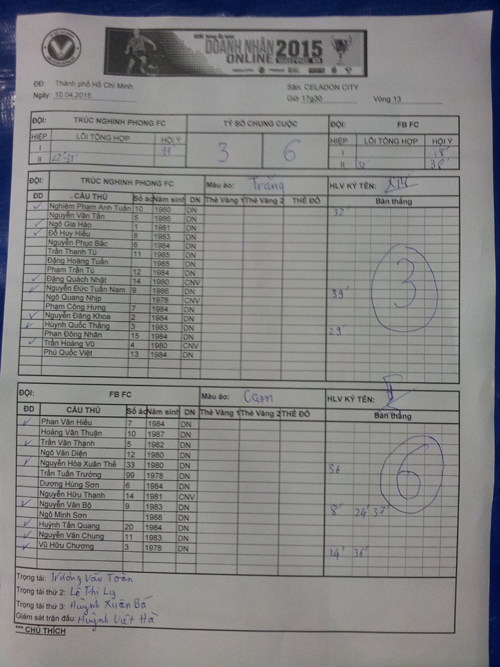 DOANH NHÂN 2015
ONLINE
ĐĐ: Thành phố Hồ Chí Minh Sân: CELADON CITY
Ngày: 10.04.2015 Giờ 17g30 Vòng 13
ĐỘI: TRÚC NGHINH PHONG FC TỶ SỐ CHUNG CUỘC ĐỘI: FB FC
HIỆP LỖI TỔNG HỢP HỘI Ý 3 6 HIỆP LỖI TỔNG HỢP HỘI Ý
I I 18'
II II 38'
ĐỘI: TRÚC NGHINH PHONG FC Màu áo: Trắng HLV KÝ TÊN:
ĐD CẦU THỦ Số áo Năm sinh DN Thẻ Vàng 1 Thẻ Vàng 2 THẺ ĐỎ Bàn thắng
Nghiêm Phạm Anh Tuấn 10 1980 DN 32'
Nguyễn Văn Tần 5 1986 DN
Ngô Gia Hào 1 1981 DN
Đỗ Huy Hiếu 8 1983 DN
Nguyễn Phục Bắc 6 1984 DN
Trần Thanh Tú 11 1985 DN
Đặng Hoàng Tuấn 1985 DN
Phạm Trần Tú 12 1984 DN
Đặng Quách Nhật 14 1980 CNV
Nguyễn Đức Tuấn Nam 9 1986 DN 39'
Ngô Quang Nhip 1978 CNV
Phạm Công Hưng 7 1984 DN
Nguyễn Đăng Khoa 2 1984 DN
Huỳnh Quốc Thắng 3 1983 DN 29'
Phan Đông Nhân 15 1984 DN
Trần Hoàng Vũ 4 1980 CNV
Phú Quốc Việt 13 1984 DN
3
ĐỘI: FB FC Màu áo: Cam HLV KÝ TÊN:
ĐD CẦU THỦ Số áo Năm sinh DN Thẻ Vàng 1 Thẻ Vàng 2 THẺ ĐỎ Bàn thắng
Phan Văn Hiếu 7 1984 DN
Hoàng Văn Thuận 10 1987 DN
Trần Văn Thạnh 5 1982 DN
Ngô Văn Diện 12 1980 DN
Nguyễn Hòa Xuân Thê 33 1980 DN
Trần Tuấn Trường 99 1978 DN
Dương Hùng Sơn 6 1984 DN
Nguyễn Hữu Thanh 14 1981 CNV
Nguyễn Văn Bộ 9 1983 DN 8' 24' 37'
Ngô Minh Sơn 1988 DN
Huỳnh Tấn Quang 20 1984 DN
Nguyễn Văn Chung 11 1983 DN
Vũ Hữu Chương 3 1978 DN 14' 36'
6
Trọng tài: Trương Văn Toàn
Trọng tài thứ 2: Lê Thi Ly
Trọng tài thứ 3: Huỳnh Xuân Bá
Giám sát trận đấu: Huỳnh Việt Hà
*** CHÚ THÍCH